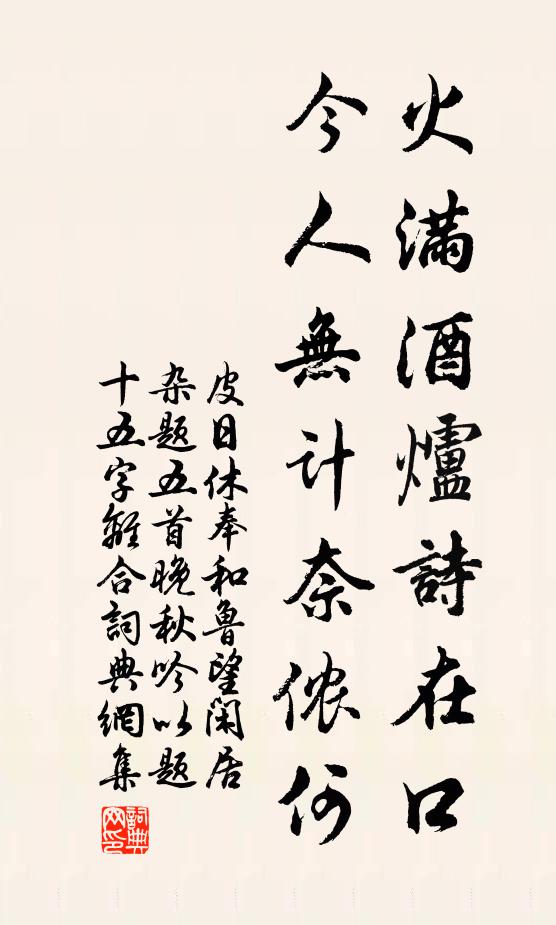 火滿酒爐詩在口
今人無計奈儂何
皮日休奉和魯望閑居
杂题五首晚秋吟以题
十五字離合詞典網集
詞典
网印